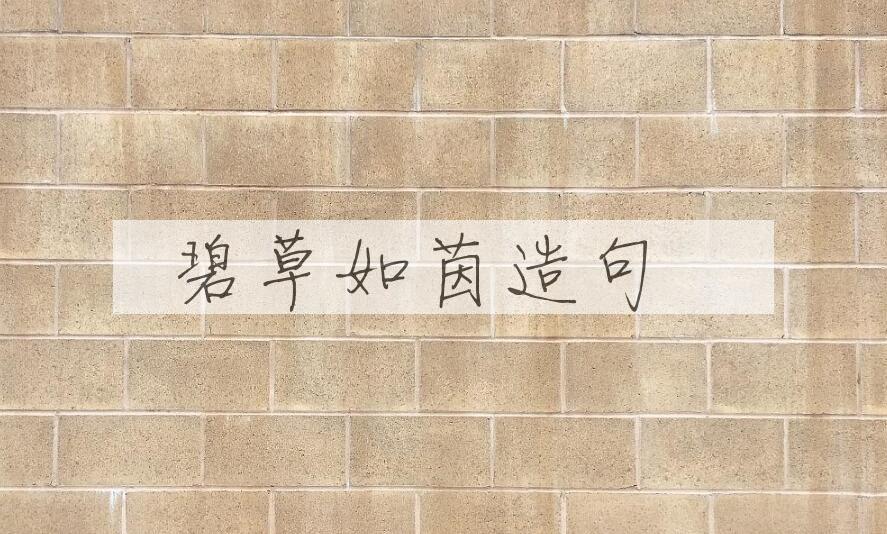 碧草如茵造句